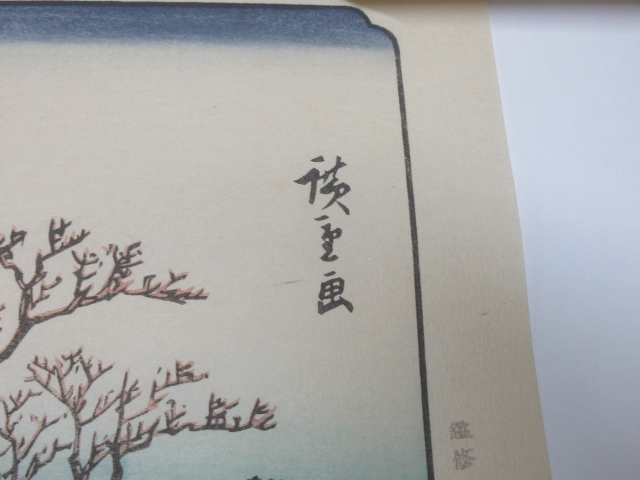 廣重画
監修